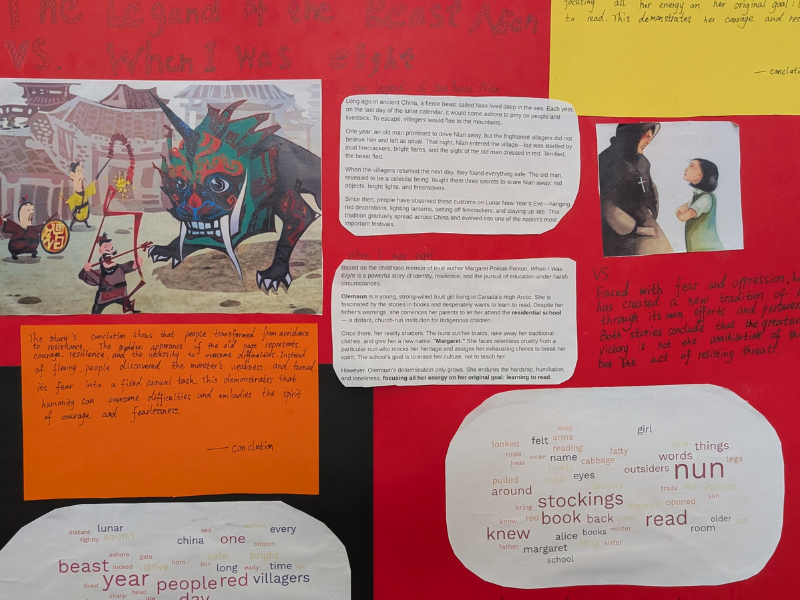 The Legend of the Beast Nian
VS. When I was eight
focusing all her energy on her original goal:
to read. This demonstrates her courage and
— conclati
Long ago in ancient China, a fierce beast called Nian lived deep in the sea. Each year,
on the last day of the lunar calendar, it would come ashore to prey on people and
livestock. To escape, villagers would flee to the mountains.
One year, an old man promised to drive Nian away, but the frightened villagers did not
believe him and left as usual. That night, Nian entered the village—but was startled by
loud firecrackers, bright flares, and the sight of the old man dressed in red. Terrified,
the beast fled.
When the villagers returned the next day, they found everything safe. The old man,
revealed to be a celestial being, taught them three secrets to scare Nian away: red
objects, bright lights, and firecrackers.
Since then, people have observed these customs on Lunar New Year's Eve—hanging
red decorations, lighting lanterns, setting off firecrackers, and staying up late. This
tradition gradually spread across China and evolved into one of the nation's most
important festivals.
Based on the childhood memoir of Inuit author Margaret Pokiak-Fenton, When I Was
Eight is a powerful story of identity, resilience, and the pursuit of education under harsh
conditions.
Olemaun is a young, strong-willed Inuit girl living in Canada's High Arctic. She is
fascinated by the stories in books and desperately wants to learn to read. Despite her
father's warnings, she convinces her parents to let her attend the residential school
— a distant, church-run institution for Indigenous children.
Once there, her reality shatters. The nuns cut her braids, take away her traditional
clothes, and give her a new name: "Margaret." She faces relentless cruelty from a
particular nun who mocks her heritage and assigns her exhausting chores to break her
spirit. The school's goal is to erase her culture, not to teach her.
However, Olemaun's determination only grows. She endures the hardship, humiliation,
and loneliness, focusing all her energy on her original goal: learning to read.
VS.
Faced with fear and oppression,
has created a new tradition of
through its own efforts and
Both stories conclude that the greatest
victory is not the annihilation of
but the act of resisting threats.
The story's conclation shows that people transformed from avoidance
to resistance. The sudden apperance of the old sage represents
courage, resilience, and the necessity to overcome difficulties. Instead
of fleeing, people discovered the monster's weakness and turned
its fear into a fixed annual task. This demonstrates that
humanity can overcome difficulties and embodies the spirit
of courage and fearlessness.
— conclation
keep girl
looked felt arms things
reading
rosie woke name fatty words legs
hear cabbage outsiders nun
pulled eyes
around trade
stockings opened sun
bring
know red book back read older
knew alice books winter room
father margaret sister
school
distans lunar sea every
slightly sound china one bottom
ashore gate safe bright
beast locked drive horn long early time
lived year people red villagers
sharp head day